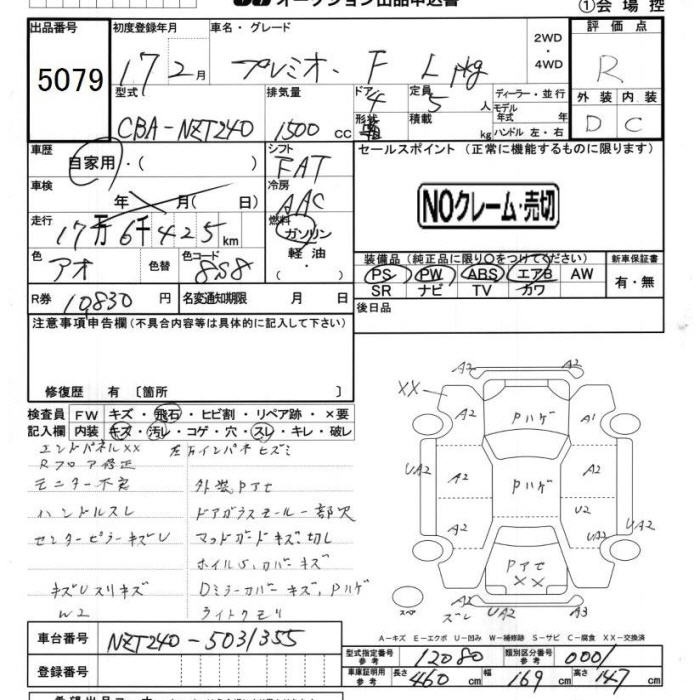 オークション出品申込書
①会場控
出品番号
5079
初度登録年月
17 2月
車名・グレード
プレミオ F Lpkg
2WD
・
4WD
評価点
R
型式
CBA-NZT240
排気量
1500 cc
ドア
4
形状
定員
5 人
積載
kg
ディーラー・並行
モデル
年式 年
ハンドル 左・右
外装 内装
D C
車歴
自家用・( )
シフト
FAT
セールスポイント (正常に機能するものに限ります)
NOクレーム・売切
車検
年 月( 日)
冷房
AAC
走行
17万6千425km
燃料
ガソリン
軽油
・
色
アオ
色替
色コード
8S8
装備品 (純正品に限り○をつけてください)
PS PW ABS エアB AW
SR ナビ TV カワ
新車保証書
有・無
R券 10830円
名変通知期限 月 日
後日品
注意事項申告欄 (不具合内容等は具体的に記入して下さい)
修復歴 有 〔箇所 〕
検査員 FW キズ・飛石・ヒビ割・リペア跡・×要
記入欄 内装 キズ・汚レ・コゲ・穴・スレ・キレ・破レ
エンドパネルXX 左カインパネヒズミ
Rフロア修正
モニター不良 外装Pアセ
ハンドルスレ ドアガラスモール一部欠
センターピラーキズU マッドガードキズ切レ
ホイルS,カバーキズ
キズUスリキズ Dミラーカバーキズ,Pハゲ
W2 ライトクモリ
A2
XX
A2
Pハゲ
A1
A2
UA2
A2
Pハゲ
A2
U2
A2
UA2
UA2
Pアセ
XX
スペア
A2
ズレ
UA2
A3
A2
A-キズ E-エクボ U-凹み W-補修跡 S-サビ C-腐食 XX-交換済
車台番号 NZT240-5031355
登録番号
型式指定番号
参考
12080
類別区分番号
参考
0001
車庫証明用
参考
長さ 460cm
幅 169cm
高さ 147cm